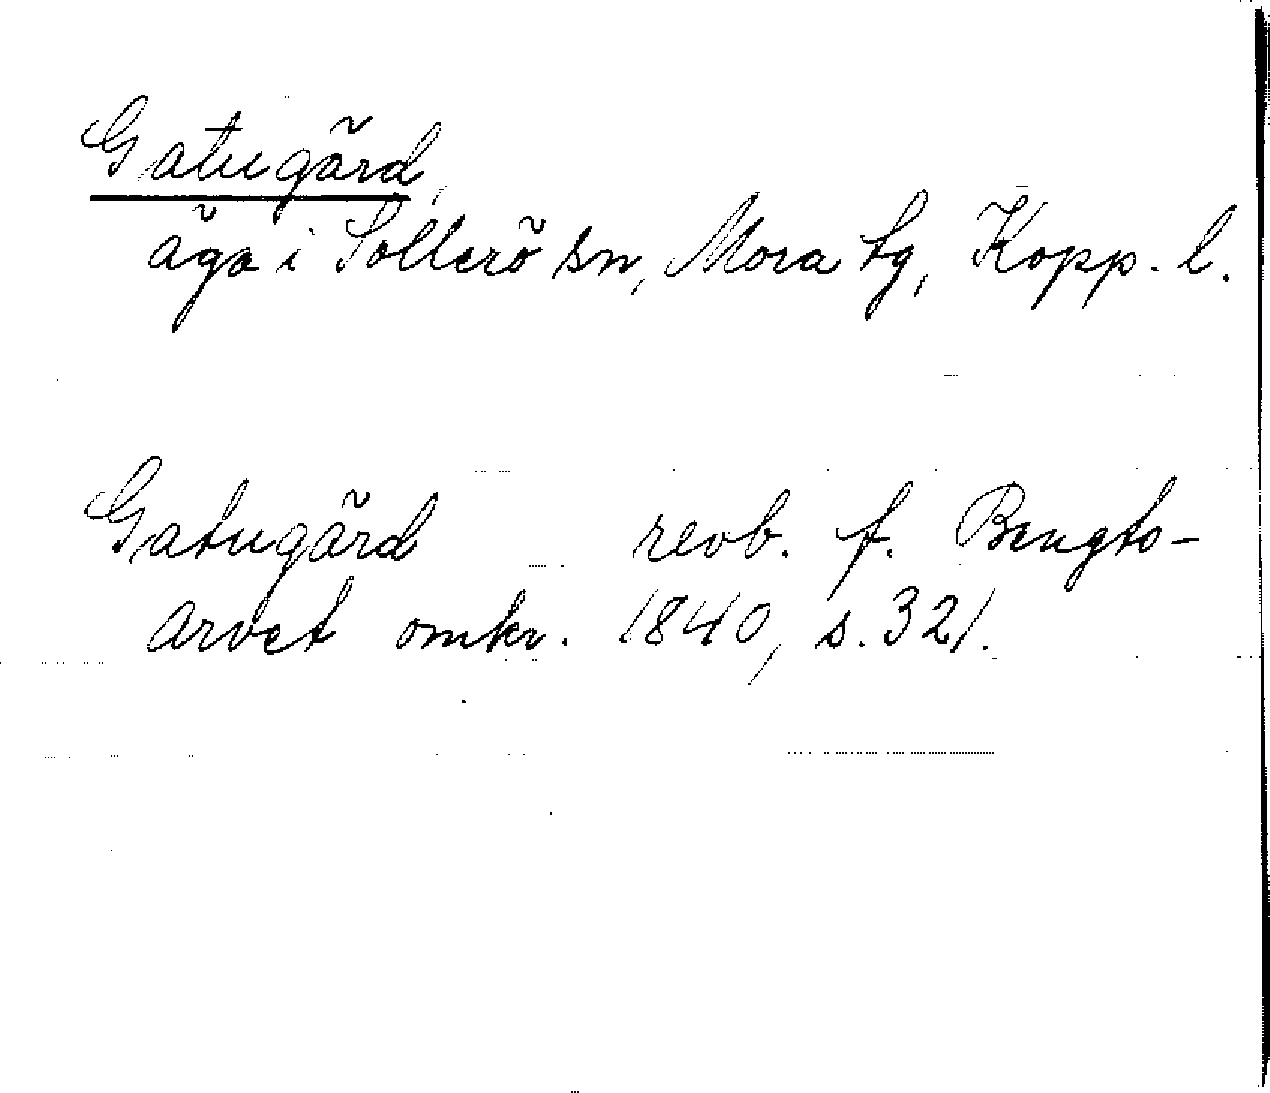 Gatugård,
äga i Sollerö sn, Mora tg, Kopp. l.
Gatugård revb. f. Bengts-
arvet omkr. 1840, s. 321.